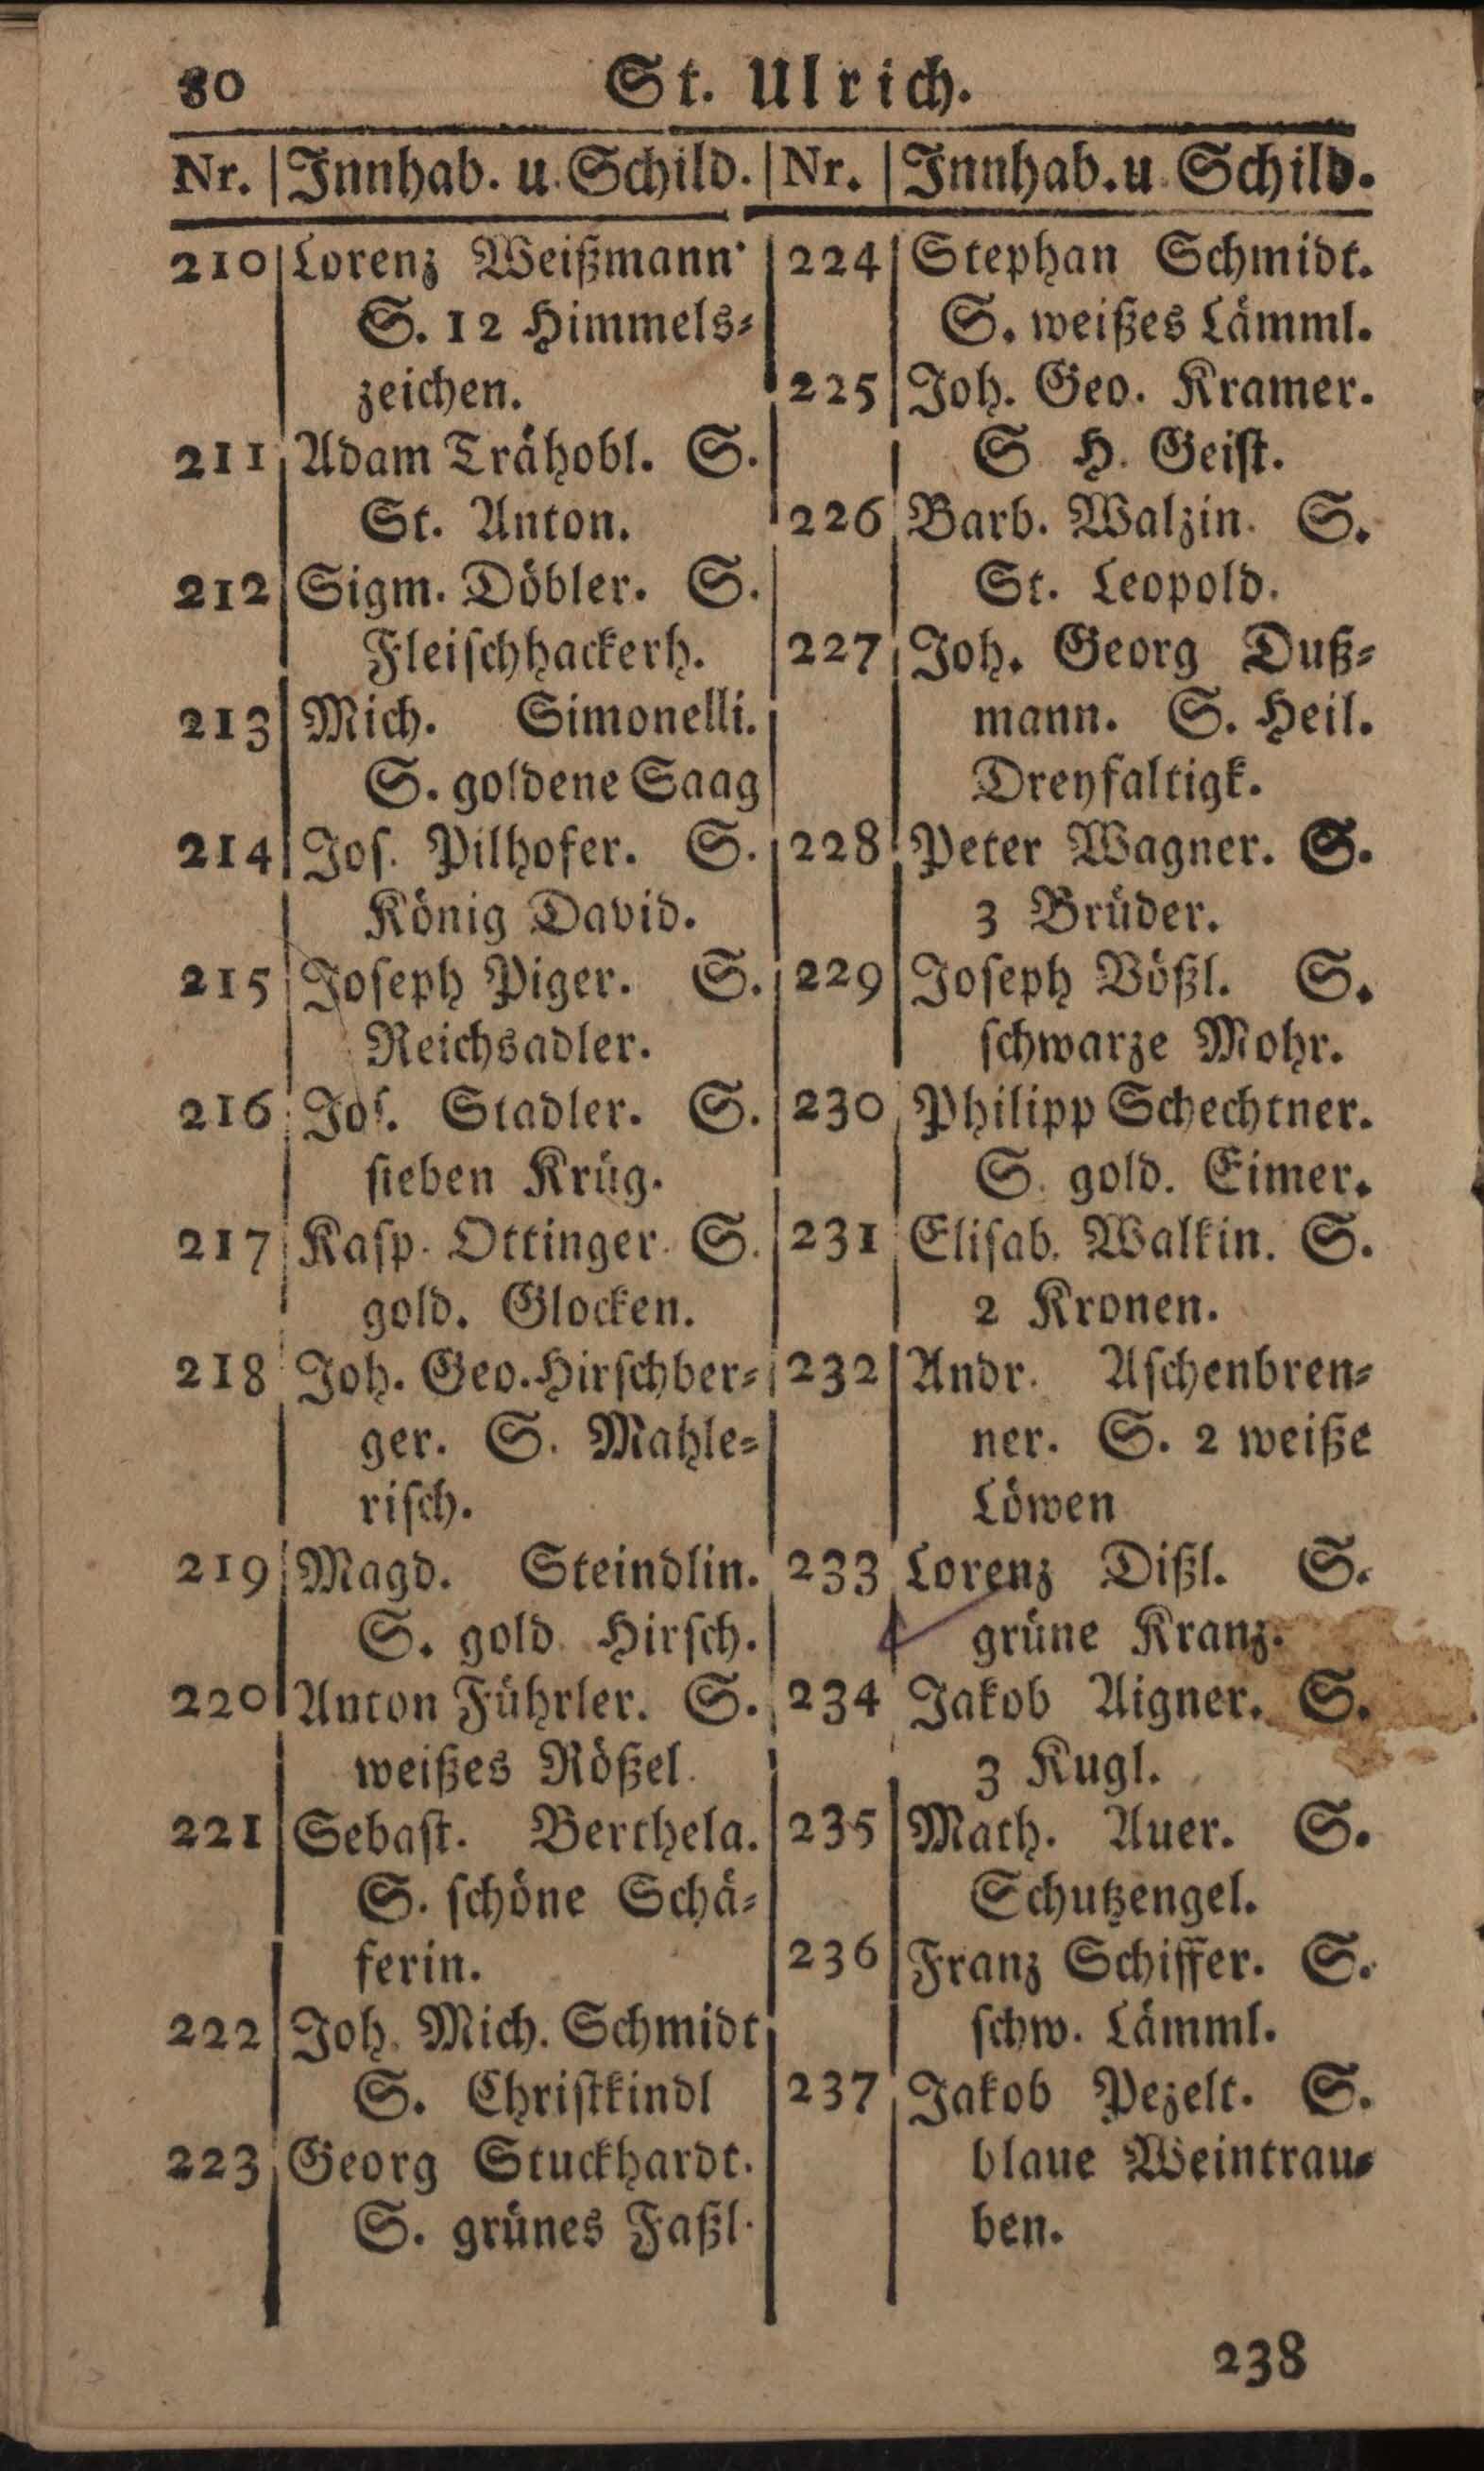 80 St. Ulrich.
Nr. Innhab. u. Schild. Nr. Innhab. u. Schild.
210 Lorenz Weißmann
S. 12 Himmels-
zeichen.
211 Adam Trähobl. S.
St. Anton.
212 Sigm. Döbler. S.
Fleischhackerh.
213 Mich. Simonelli.
S. goldene Saag
214 Jos. Pilhofer. S.
König David.
215 Joseph Piger. S.
Reichsadler.
216 Jos. Stadler. S.
sieben Krüg.
217 Kasp. Ottinger. S.
gold. Glocken.
218 Joh. Geo. Hirschber-
ger. S. Mahle-
risch.
219 Magd. Steindlin.
S. gold. Hirsch.
220 Anton Führler. S.
weißes Rößel.
221 Sebast. Berthela.
S. schöne Schä-
ferin.
222 Joh. Mich. Schmidt
S. Christkindl
223 Georg Stuckhardt.
S. grünes Faßl.
224 Stephan Schmidt.
S. weißes Lämml.
225 Joh. Geo. Kramer.
S H. Geist.
226 Barb. Walzin. S.
St. Leopold.
227 Joh. Georg Duß-
mann. S. Heil.
Dreyfaltigk.
228 Peter Wagner. S.
3 Brüder.
229 Joseph Vößl. S.
schwarze Mohr.
230 Philipp Schechtner.
S. gold. Eimer.
231 Elisab. Walkin. S.
2 Kronen.
232 Andr. Aschenbren-
ner. S. 2 weiße
Löwen
233 Lorenz Dißl. S.
grüne Kranz.
234 Jakob Aigner. S.
3 Kugl.
235 Math. Auer. S.
Schutzengel.
236 Franz Schiffer. S.
schw. Lämml.
237 Jakob Pezelt. S.
blaue Weintrau-
ben.
238